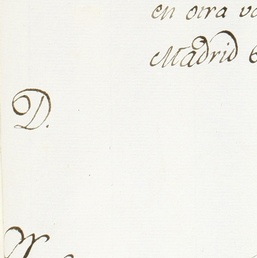 en otra
Madrid
D.